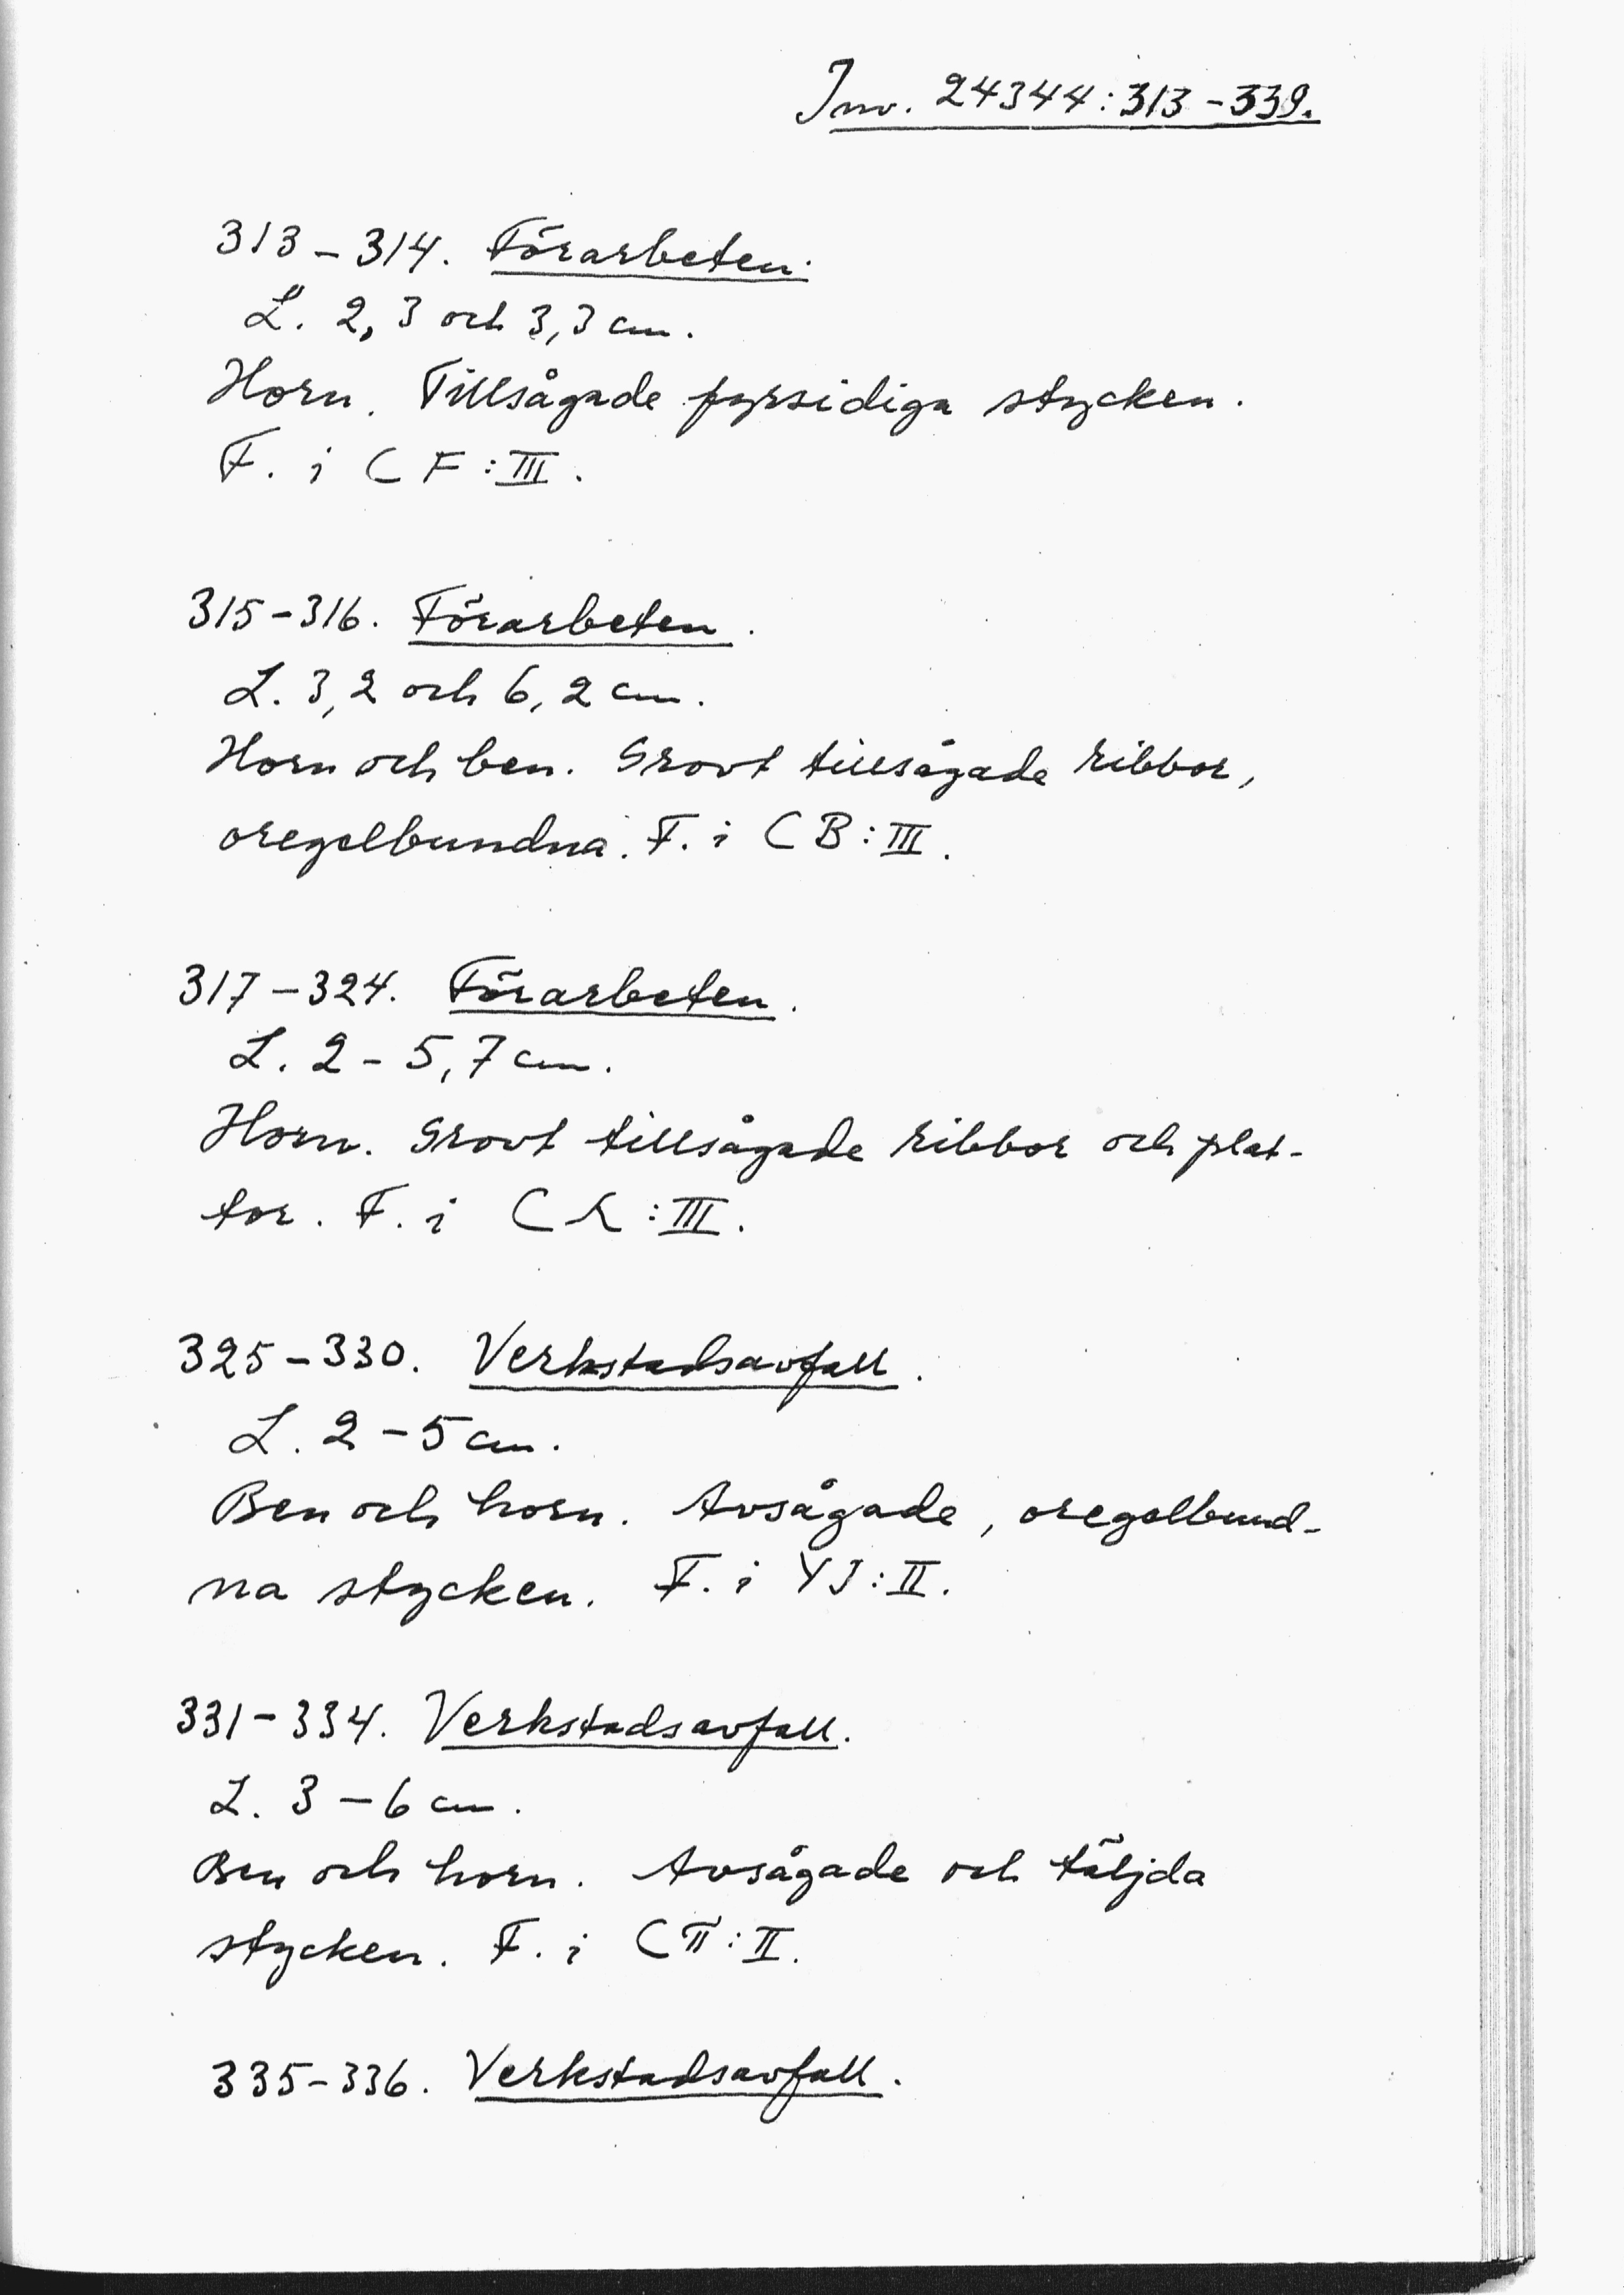 Inv. 24344:313-339.
313-314. Förarbeten.
L. 2,3 och 3,3 cm.
Horn. Tillsågade fyrsidiga stycken.
F. i CF:III.
315-316. Förarbeten.
L. 3,2 och 6,2 cm.
Horn och ben. Grovt tillsågade ribbor,
oregelbundna. F. i CB:III.
317-324. Förarbeten.
L. 2-5,7 cm.
Horn. Grovt tillsågade ribbor och plat-
tor. F. i :III.
325-330. Verkstadsavfall.
L. 2-5 cm.
Ben och horn. Avsågade, oregelbund-
na stycken. F. i YJ:II.
331-334. Verkstadsavfall.
L. 3-6 cm.
Ben och horn. Avsågade och täljda
stycken. F. i :II.
335-336. Verkstadsavfall.